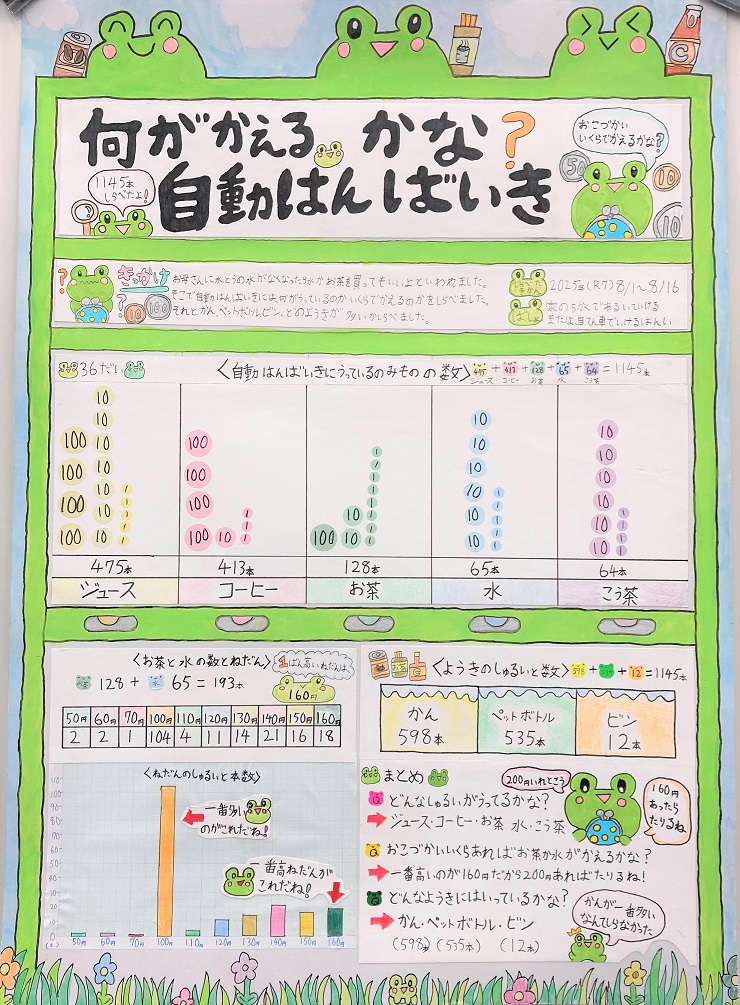 何がかえるかな?
自動はんばいき
1145本
しらべたよ!
おこづかい
いくらでかえるかな?
50
100
10
C
きっかけ
お母さんに水とうの水がなくなったら水かお茶を買ってもいいよといわれました。
そこで自動はんばいきには何がうっているのかいくらでかえるのかをしらべました。
それとかん、ペットボトル、ビン、どのようきが多いかしらべました。
10 100
しらべた
2025年(R7) 8/1~8/16
ばしょ
家の近くであるいていける
または自てん車でいけるはんい
36だい
〈自動はんばいきにうっているのみものの数〉
475+413+128+65+64=1145本
ジュース コーヒー お茶 水 こう茶
100 100 100 100
10 10 10 10 10 10 10
1 1 1 1 1
100 100 100 100
10
1 1 1
100
10 10
1 1 1 1 1 1 1 1
10 10 10 10 10 10
1 1 1 1 1
10 10 10 10 10 10
1 1 1 1
475本 413本 128本 65本 64本
ジュース コーヒー お茶 水 こう茶
〈お茶と水の数とねだん〉
お茶 128+水 65=193本
1ばん高いねだんは
160円
50円 60円 70円 100円 110円 120円 130円 140円 150円 160円
2 2 1 104 4 11 14 21 16 18
〈ねだんのしゅるいと本数〉
110
100
90
80
70
60
50
40
30
20
10
0
(本)
50円 60円 70円 100円 110円 120円 130円 140円 150円 160円
一番多い
のがこれだね!
一番高いねだんが
これだね!
お茶
〈ようきのしゅるいと数〉
598+535+12=1145本
かん
598本
ペットボトル
535本
ビン
12本
まとめ
200円いれとこう
160円
あったら
たりるね
Q どんなしゅるいがうってるかな?
ジュース・コーヒー・お茶 水・こう茶
Q おこづかいいくらあればお茶か水がかえるかな?
一番高いのが160円だから200円あればたりるね!
Q どんなようきにはいっているかな?
かん・ペットボトル・ビン
(598本)(535本)(12本)
かんが一番多い
なんてしらなかった